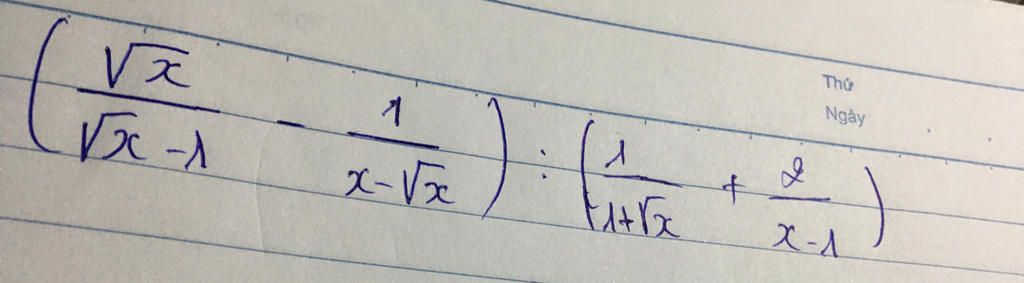 (√x / (√x - 1) - 1 / (x - √x)) : (1 / (1 + √x) + 2 / (x - 1))
Thứ
Ngày